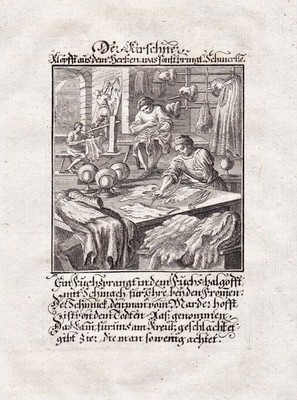 Der Kirschner.
Klopfft aus dem Hertzen, was sonst bringt Schmertze.
Ein Fuchs prangt in dem Fuchs-balg offt
mit Schmach für Ehre bey den Frommen:
Der Schmuck, den man vom Marder hofft
ist von dem Todten-Aaß genommen.
Das Lam̅ für uns am Kreutz geschlachtet
gibt Zier, die man so wenig achtet.